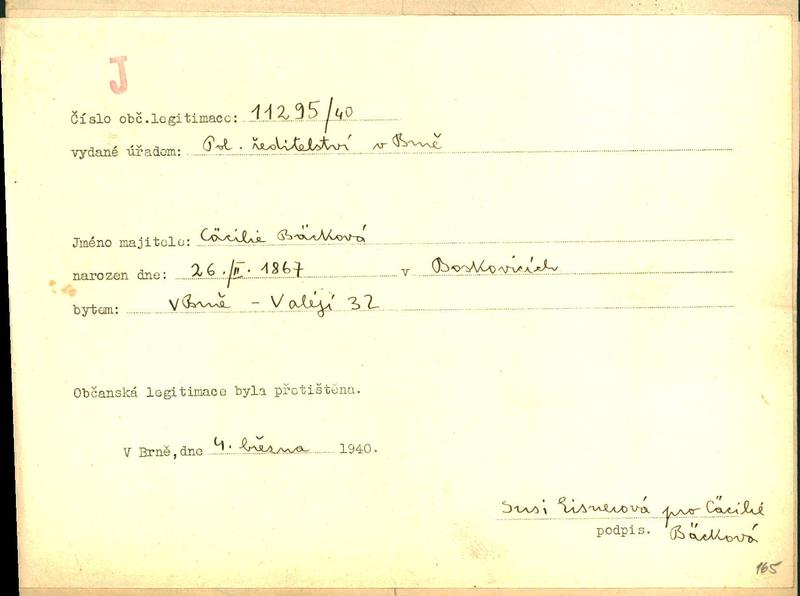 J
číslo obč.legitimace: 11295/40
vydané úřadem: Pol. ředitelství v Brně
Jméno majitele: Cäcilie Bäcková
narozen dne: 26./II. 1867 v Boskovicích
bytem: V Brně - Valéjí 32
Občanská legitimace byla přetištěna.
V Brně, dne 4. března 1940.
Susi Eisnerová pro Cäcilié
podpis. Bäcková
165